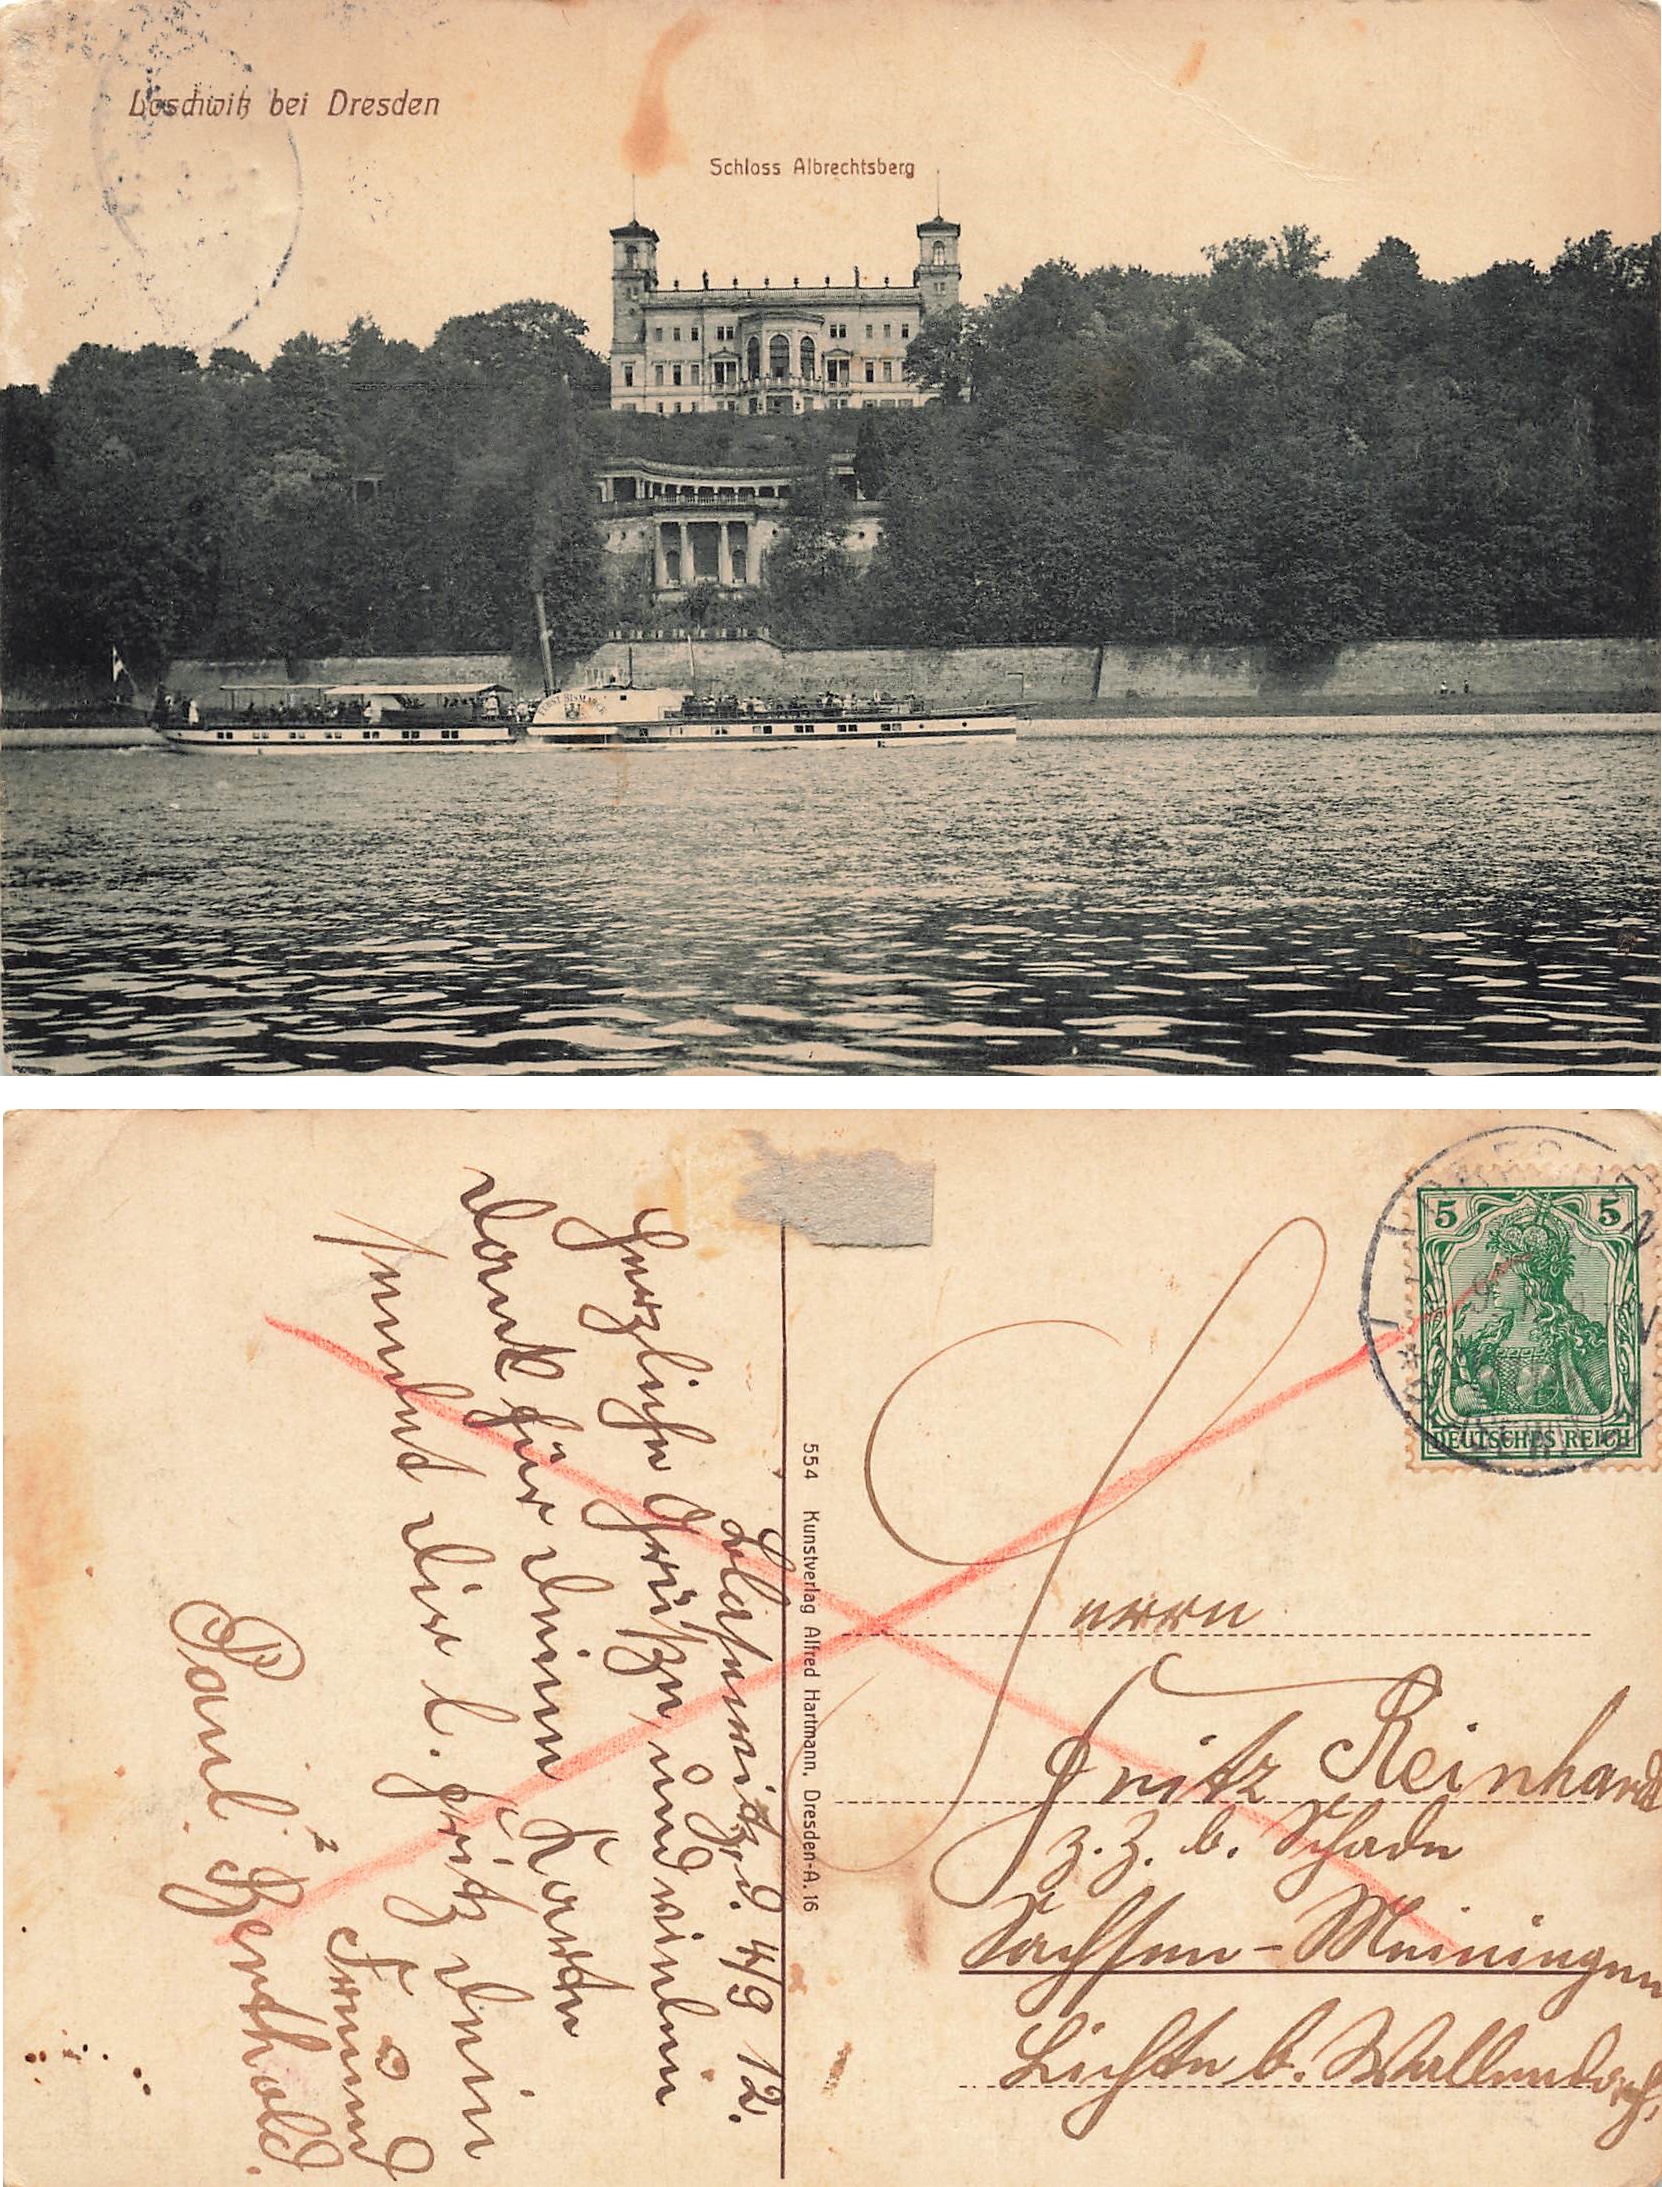 Loschwitz bei Dresden
Schloss Albrechtsberg
FÜRST BISMARCK
5 5
DEUTSCHES REICH
554 Kunstverlag Alfred Hartmann, Dresden-A. 16
Blasewitz, d. 4/9 12.
Herzliche Grüße, und vielen
Dank für deine Karte
sendet Dir l. Fritz dein
Freund
Paul Berthold.
Herrn
Fritz Reinhardt
z. Z. b. Schade
Sachsen-Meiningen
Lichte b. Wallendorf.